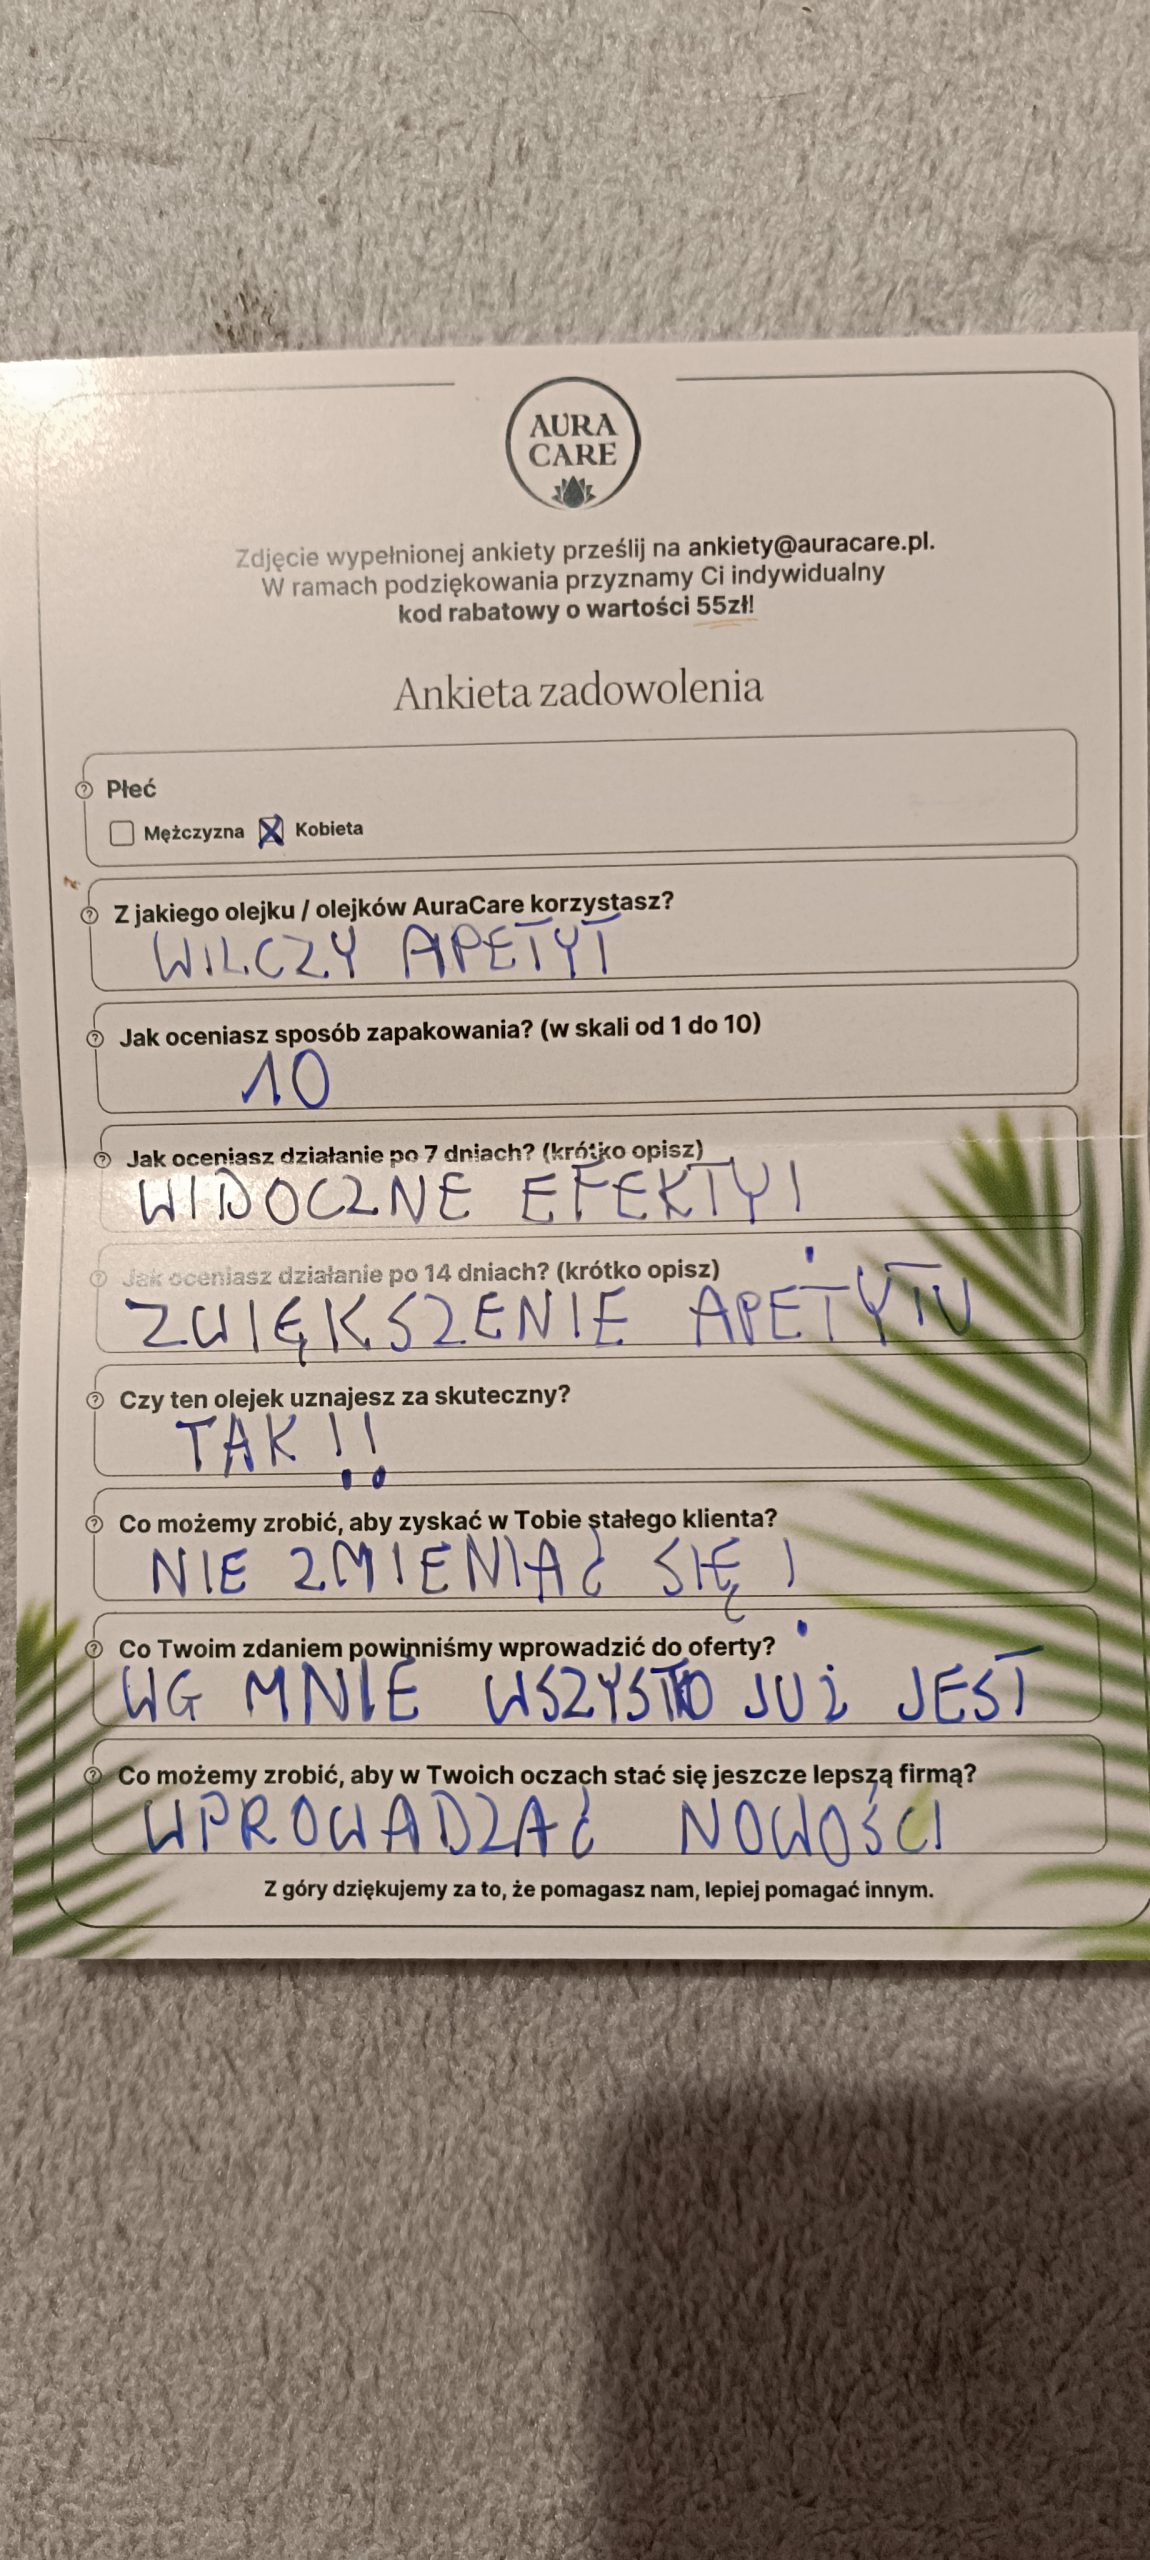 AURA
CARE
Zdjęcie wypełnionej ankiety prześlij na ankiety@auracare.pl.
W ramach podziękowania przyznamy Ci indywidualny
kod rabatowy o wartości 55zł!
Ankieta zadowolenia
Płeć
Mężczyzna Kobieta
Z jakiego olejku / olejków AuraCare korzystasz?
WILCZY APETYT
Jak oceniasz sposób zapakowania? (w skali od 1 do 10)
10
Jak oceniasz działanie po 7 dniach? (krótko opisz)
WIDOCZNE EFEKTY!
Jak oceniasz działanie po 14 dniach? (krótko opisz)
ZWIĘKSZENIE APETYTU
Czy ten olejek uznajesz za skuteczny?
TAK!!
Co możemy zrobić, aby zyskać w Tobie stałego klienta?
NIE ZMIENIAĆ SIĘ!
Co Twoim zdaniem powinniśmy wprowadzić do oferty?
WG MNIE WSZYSTKO JUŻ JEST
Co możemy zrobić, aby w Twoich oczach stać się jeszcze lepszą firmą?
WPROWADZAĆ NOWOŚCI
Z góry dziękujemy za to, że pomagasz nam, lepiej pomagać innym.